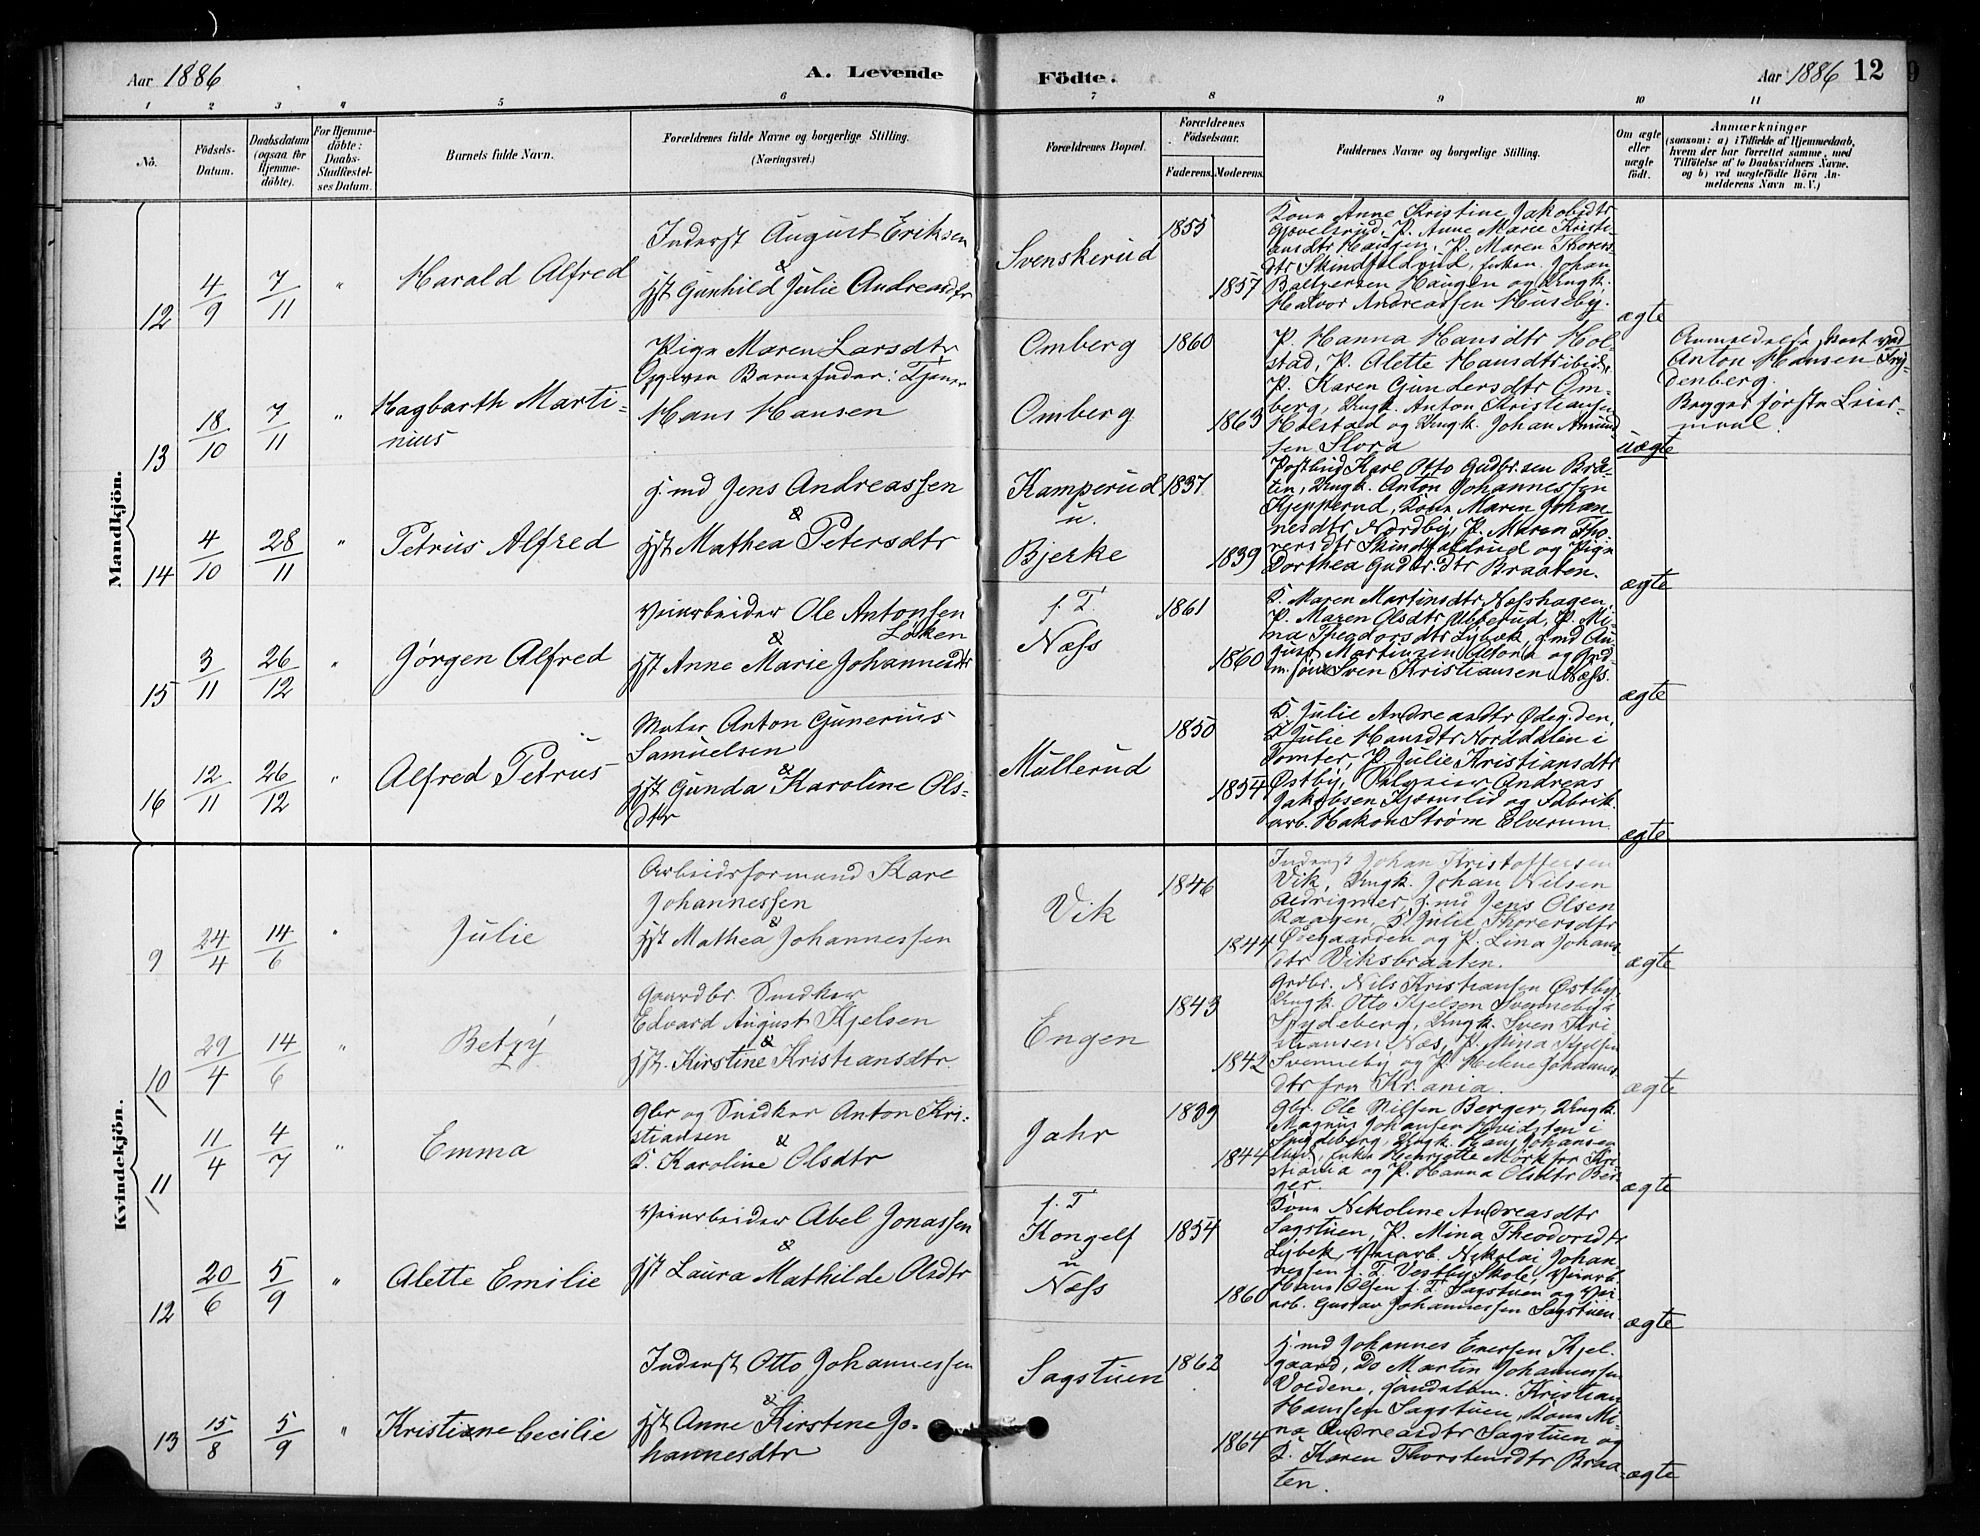 Aar 1886
A. Levende
Födte.
Aar 1886
12
1 2 3 4 5 6 7 8 9 10 11
No.
Födsels-
Datum.
Daabsdatum
(ogsaa for
Hjemme-
döbte).
For Hjemme-
döbte:
Daabs-
Stadfæstel-
ses Datum.
Barnets fulde Navn.
Forældrenes fulde Navne og borgerlige Stilling.
(Næringsvei.)
Forældrenes Bopæl.
Forældrenes
Födselsaar.
Faderens.
Moderens.
Faddernes Navne og borgerlige Stilling.
Om ægte
eller
uægte
födt.
Anmærkninger
(saasom: a) i Tilfælde af Hjemmedaab,
hvem der har forrettet samme, med
Tilföielse af to Daabsvidners Navne,
og b) ved uægtefödte Börn An-
melderens Navn m. V.)
Mandkjön.
12
4/9
7/11
"
Harald Alfred
Inderst August Eriksen
&
Hst Gunhild Julie Andreasdtr
Svenskerud
1855
1857
Kone Anne Kristine Jakobsdtr
Gjøvelsrud, P. Anne Marie Kristi-
ansdtr Haugen, P. Maren Thorers-
dtr Skindfaldrud, Enkem. Johan
Baltzersen Haugen og Ungk.
Halvor Andreassen Huseby.
ægte
13
18/10
7/11
"
Hagbarth Marti-
nius
Pige Maren Larsdtr
Opgiven Barnefader: Tjener
Hans Hansen
Omberg
Omberg
1860
1863
P. Hanna Hansdtr Hol-
stad, P. Alette Hansdtr ibid.,
P. Karen Gundersdtr Om-
berg, Ungk. Anton Kristiansen
Holstad og Ungk. Johan Amund-
sen Slora
uægte
Anmeldelse skeet ved
Anton Hansen Fry-
denberg.
Begges første Leier-
maal.
14
4/10
28/11
"
Petrus Alfred
H.md Jens Andreassen
&
Hst Mathea Petersdtr
Kamperud
u.
Bjerke
1837
1839
Postbud Karl Otto Gudbr.sen Braa-
ten, Ungk. Anton Johannessen
Kjepperud, Kone Maren Johan-
nesdtr Nordby, P. Maren Tho-
rersdtr Skindfaldrud og Pige
Dorthea Gudbr.dtr Braaten.
ægte
15
3/11
26/12
"
Jørgen Alfred
Veiarbeider Ole Antonsen
Løken
&
Hst Anne Marie Johannesdtr
f. T.
Næss
1861
1860
K. Maren Martinsdtr Næsshagen,
P. Maren Olsdtr Ubberud, P. Mi-
na Theodorsdtr Lybek, H.md Au-
gust Martinsen Mona og Grd-
m.søn Sven Kristiansen Næss.
ægte
16
12/11
26/12
"
Alfred Petrus
Maler Anton Gunerius
Samuelsen
&
Hst Gunda Karoline Ols-
dtr
Mullerud
1850
1854
K. Julie Andreasdtr Ødeg.den,
K. Julie Hansdtr Norddalen i
Tomter, P. Julie Kristiansdtr
Østby, Andreas
Jakobsen Kjærnslid og Fabrik-
arb. Hakon Strøm Elverum.
ægte
Kvindekjön.
9
24/4
14/6
"
Julie
Arbeidsformand Karl
Johannessen
&
Hst Mathea Johannessen
Vik
1846
1844
Inderst Johan Kristoffersen
Vik, Ungk. Johan Nilsen
Aldrigmer, H.md Jens Olsen
Raagen, K. Julie Thorersdtr
Ødegaarden og P. Lina Johans-
dtr Viksbraaten.
ægte
10
29/4
14/6
"
Betzy
Gaardbr. Snedker
Edvard August Kjelsen
&
Hst. Kirstine Kristiansdtr.
Engen
1843
1842
Grdbr. Nils Kristiansen Østby,
Ungk. Otto Kjelsen Svenneby i
Spydeberg, Ungk. Sven Kri-
stiansen Næs, P. Mina Kjelsen
Svenneby og P. Helene Johannes-
dtr fra Kr.ania.
ægte
11
11/4
4/7
"
Emma
Gbr og Snedker Anton Kri-
stiansen
&
K. Karoline Olsdtr
Jahr
1839
1844
Gbr. Ole Nilsen Berger, Ungk.
Magnus Johansen Hvidsten i
Spydeberg, Ungk. Hans Johansen
Lund, Enke Henriette Mørk fr Kri-
stiania og P. Hanna Olsdtr Ber-
ger.
ægte
12
20/6
5/9
"
Alette Emilie
Veiarbeider Abel Jonassen
&
Hst Laura Mathilde Olsdtr
f. T
Kongelf
u
Næss
1854
1860
Kone Nikoline Andreasdtr
Sagstuen, P. Mina Theodorsdtr
Lybek, Veiarb. Nikolai Johan-
nessen f. T. Vestby Skole, Veiarb.
Hans Olsen f. T. Sagstuen og Vei-
arb. Gustav Johannessen Sagstuen.
ægte
13
15/8
5/9
"
Kristine Cecilie
Inderst Otto Johannessen
&
Hst Anne Kirstine Jo-
hannesdtr
Sagstuen
1862
1864
H.md Johannes Enersen Kjel-
gaard, Do Martin Johannessen
Voldene, Kristian
Hanssen Sagstuen, Kone Mi-
na Andreasdtr Sagstuen og
K. Karen Thorstensdtr Braa-
ten.
ægte